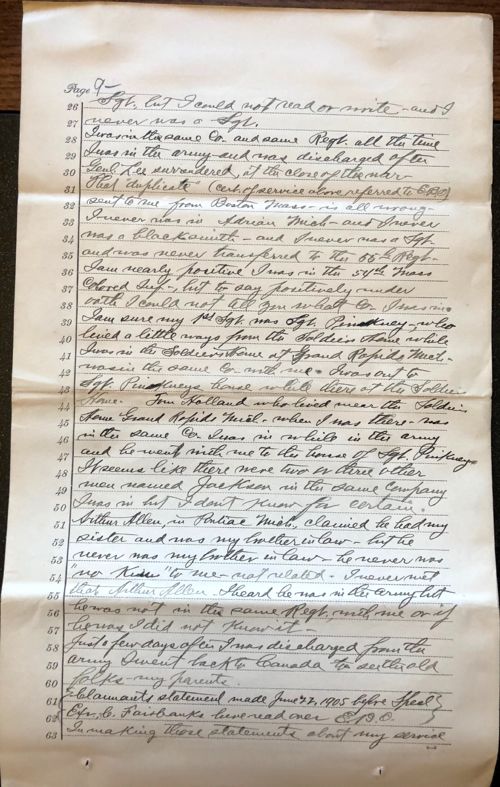 Page 9-
26 Sgt. but I could not read or write - and I
27 never was a Sgt.
28 I was in the same Co. and same Regt. all the time
29 I was in the army and was discharged after
30 Genl. Lee surrendered, at the close of the war
31 That duplicate (Cert. of service above referred to E.D.O)
32 sent to me from Boston Mass - is all wrong -
33 I never was in Adrian Mich - and I never
34 was a blacksmith - and I never was a Sgt.
35 and was never transferred to the 55th Regt -
36 I am nearly positive I was in the 54th Mass
37 Colored Inf. - but to say positively under
38 oath I could not tell you what Co. I was in.
39 I am sure my 1st Sgt. was Sgt. Pinckney - who
40 lived a little ways from the Soldiers Home while
41 I was in the Soldiers Home at Grand Rapids Mich -
42 was in the same Co. with me. I was out to
43 Sgt. Pinckneys house while there at the Soldiers
44 Home - Tom Holland who lived near the Soldiers
45 Home Grand Rapids Mich - when I was there - was
46 in the same Co. I was in while in the army
47 and he went with me to the house of Sgt. Pinckney -
48 It seems like there were two or three other
49 men named Jackson in the same Company
50 I was in but I don't know for certain.
51 Arthur Allen, in Pontiac Mich, claimed he had my
52 sister and was my brother in law - but he
53 never was my brother in law - he never was
54 "no Kin" to me - not related - I never met
55 that Arthur Allen. I heard he was in the army but
56 he was not in the same Regt. with me or if
57 he was I did not know it -
58 Just a few days after I was discharged from the
59 army I went back to Canada to see the old
60 folks - my parents.
61 { Claimants statement made June 27, 1905 before Specl }
62 { Exr. C. Fairbanks here read over E.D.O. }
63 In making those statements about my service